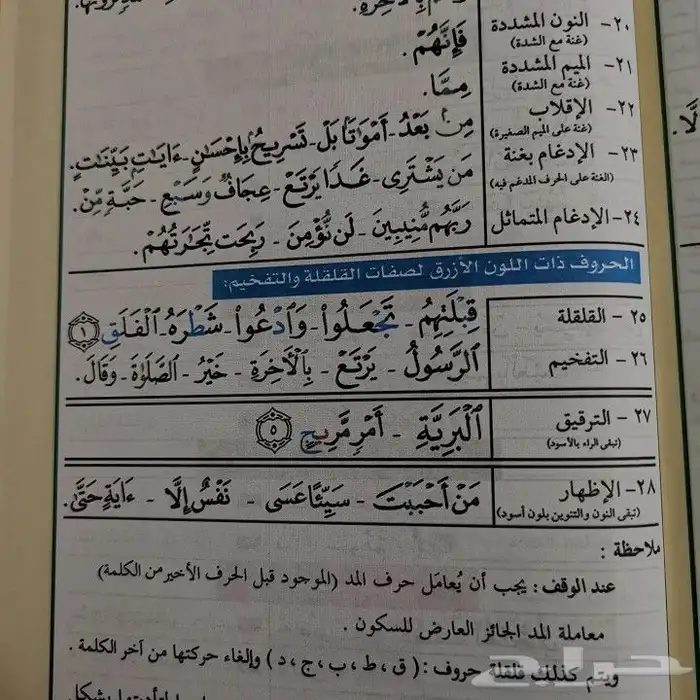 ٢٠- النون المشددة
(غنة مع الشدة)
فَإِنَّهُمْ.
٢١- الميم المشددة
(غنة مع الشدة)
مِمَّا.
٢٢- الإقلاب
(غنة على الميم الصغيرة)
مِنۢ بَعْدُ - أَمْوَٰتَۢا بَلْ - تَسْرِيحُۢ بِإِحْسَٰنٍ - ءَايَٰتِۭ بَيِّنَٰتٍ.
٢٣- الإدغام بغنة
(الغنة على الحرف المدغم فيه)
مَن يَشْتَرِى - غَدًا يَرْتَعْ - عِجَافٌ وَسَبْعِ - حَبَّةٍ مِّنْ.
٢٤- الإدغام المتماثل
رَبَّهُم مُّنِيبِينَ - لَن نُّؤْمِنَ - رَبِحَت تِّجَٰرَتُهُمْ.
الحروف ذات اللون الأزرق لصفات القلقلة والتفخيم:
٢٥ - القلقلة
قِبْلَتِهِمُ - تَجْعَلُوا۟ - وَٱدْعُوا۟ - شَطْرَهُۥ - ٱلْفَلَقِ ١
٢٦ - التفخيم
ٱلرَّسُولُ - يَرْتَعْ - بِٱلْأَخِرَةِ - خَيْرٌ - ٱلصَّلَوٰةَ - وَقَالَ.
٢٧ - الترقيق
(تبقى الراء بالأسود)
ٱلْبَرِيَّةِ - أَمْرٍ مَّرِيجٍ ٥
٢٨- الإظهار
(تبقى النون والتنوين بلون أسود)
مَنْ أَحْبَبْتَ - سَيِّئًا عَسَى - نَفْسٌ إِلَّا - ءَايَةٍ حَتَّىٰ.
ملاحظة :
عند الوقف : يجب أن يُعامَل حرف المد (الموجود قبل الحرف الأخير من الكلمة)
معاملة المد الجائز العارض للسكون .
ويتم كذلك قلقلة حروف : ( ق ، ط ، ب ، ج ، د ) وإلغاء حركتها من آخر الكلمة .
حراج